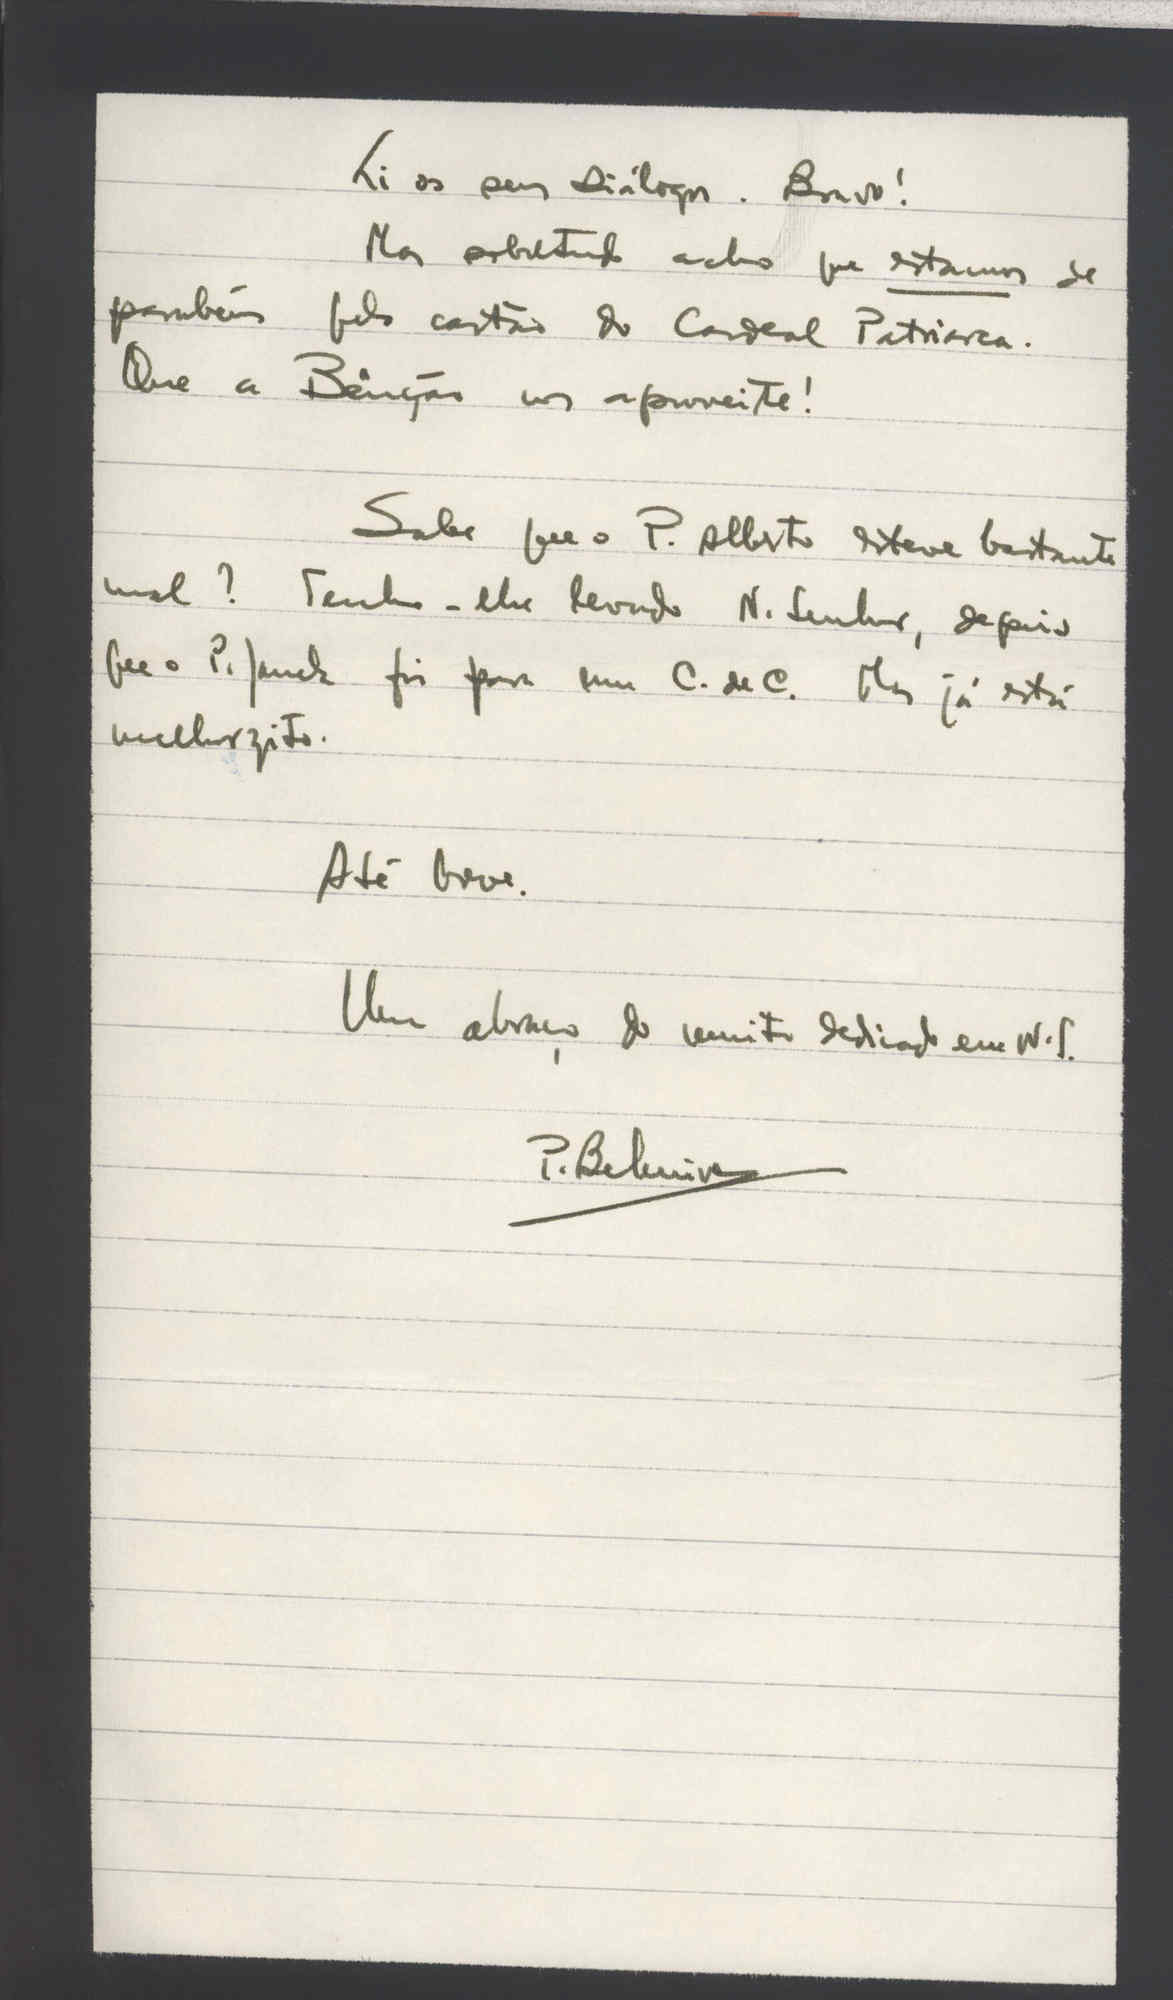 Li os seus Diálogos. Bravo!
Mas sobretudo acho que estamos de
parabéns pelo cartão do Cardeal Patriarca.
Que a Bênção nos aproveite!
Sabe que o P. Alberto esteve bastante
mal? Tenho-lhe levado N. Senhor, depois
que o P. foi para um C. de C. Mas já está
melhorzito.
Até breve.
Um abraço do muito dedicado em N.S.
P.